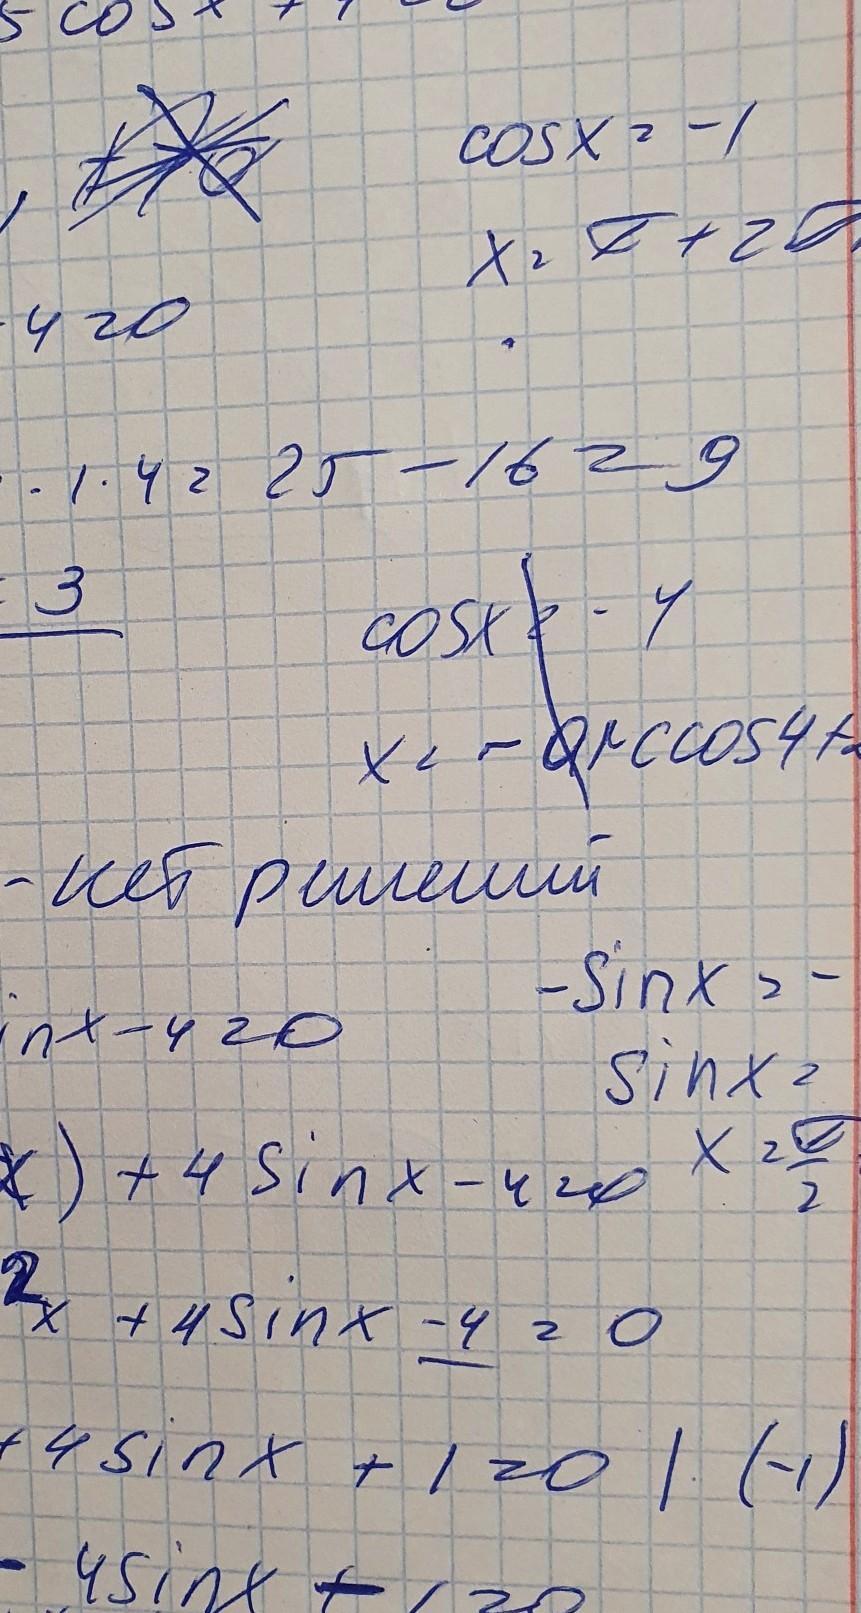 5 cosx + 4 = 0
cosx = -1
x = π + 2π
- 4 = 0
· 1 · 4 = 25 - 16 = 9
= 3
cosx = - 4
x = - arccos4 +
- нет решений
-sinx = -
inx - 4 = 0
sinx =
x) + 4 sinx - 4 = 0
x = π/2
2x + 4 sinx - 4 = 0
+ 4 sinx + 1 = 0 | · (-1)
- 4 sinx - 1 = 0